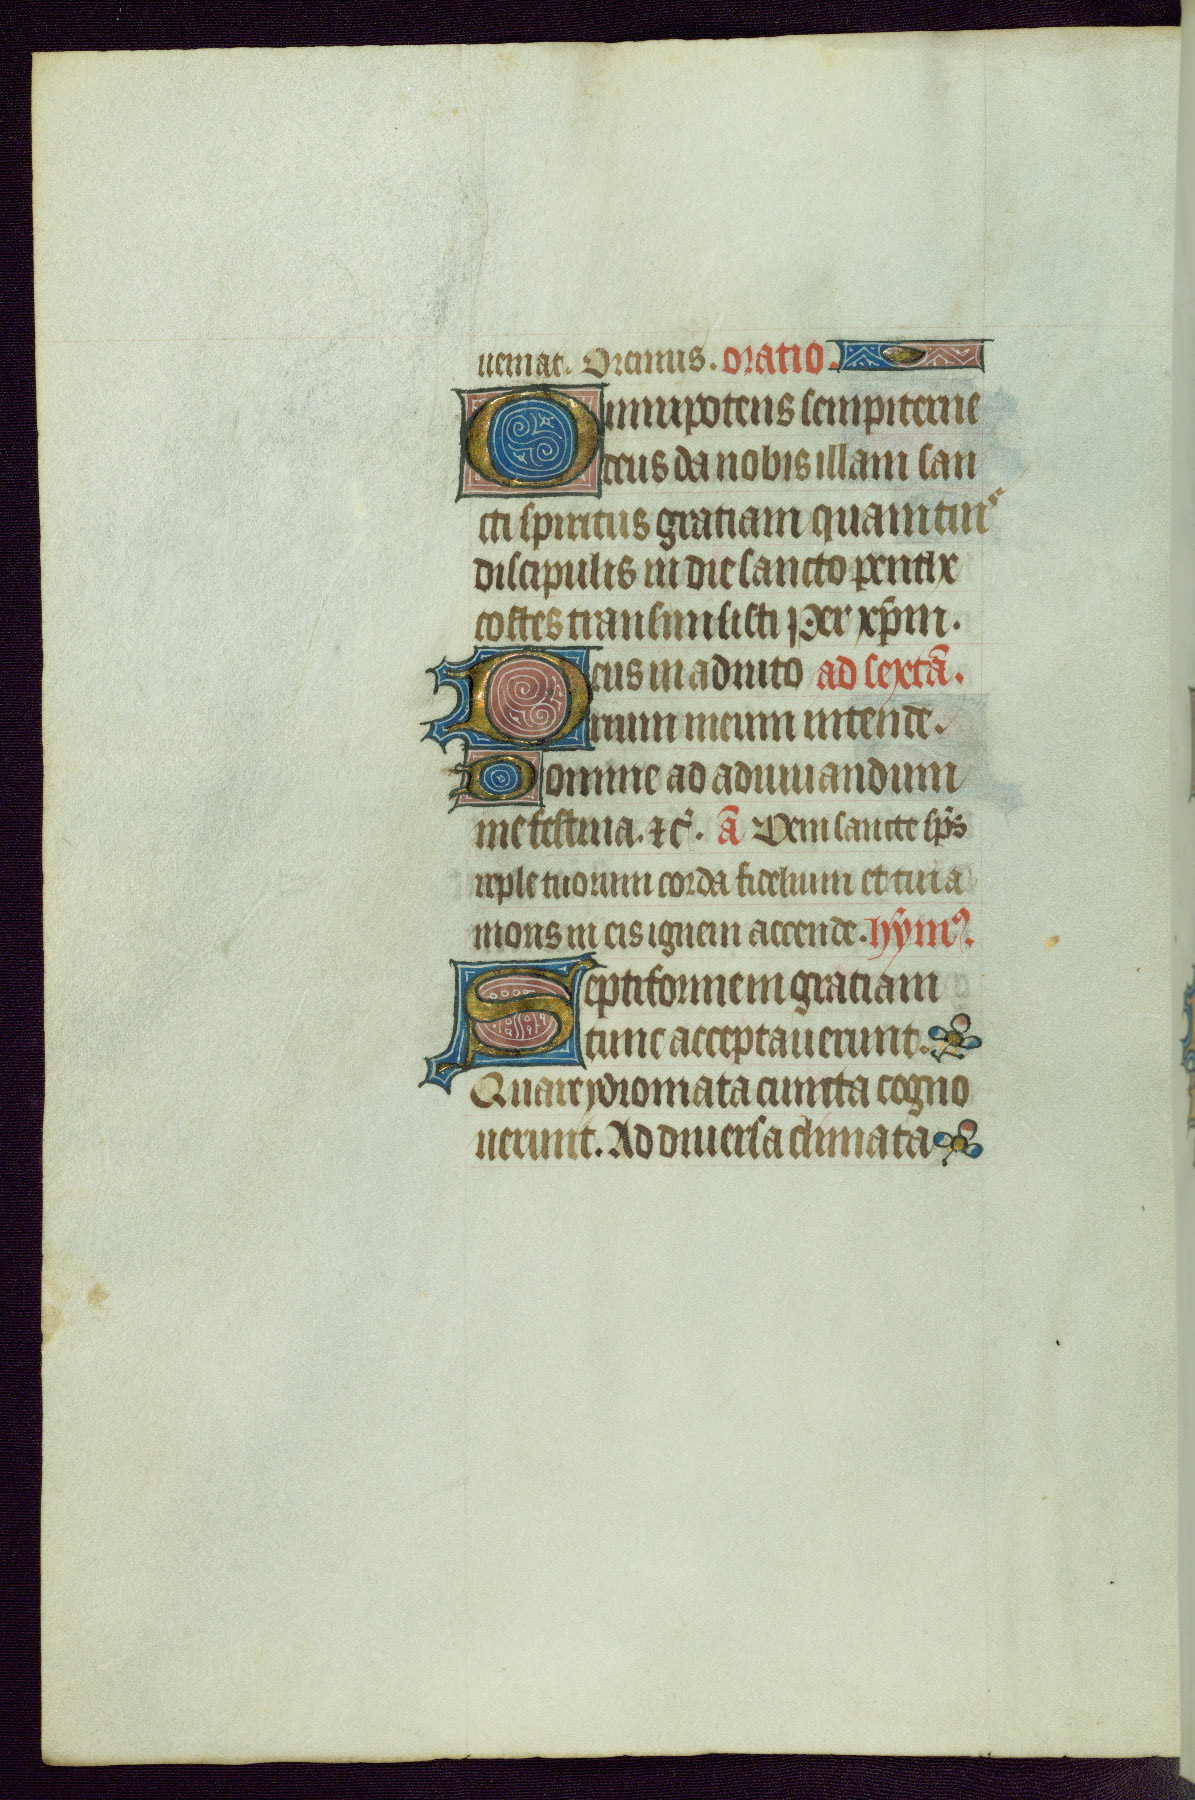 ueniat. Oremus. oratio.
Omnipotens sempiterne
deus da nobis illam san
cti spiritus gratiam quam tuis
discipulis in die sancto penthe
costes transmisisti Per xp̄m.
Deus in adiuto ad sextā.
rium meum intende.
Domine ad adiuuandum
me festina. ⁊cͥ. ā Veni sancte sp̄s
reple tuorum corda fidelium et tui a
moris in eis ignem accende. hȳmꝰ.
Septiformem gratiam
tunc acceptauerunt.
Quare ydiomata cuncta cogno
uerunt. Ad diuersa climata